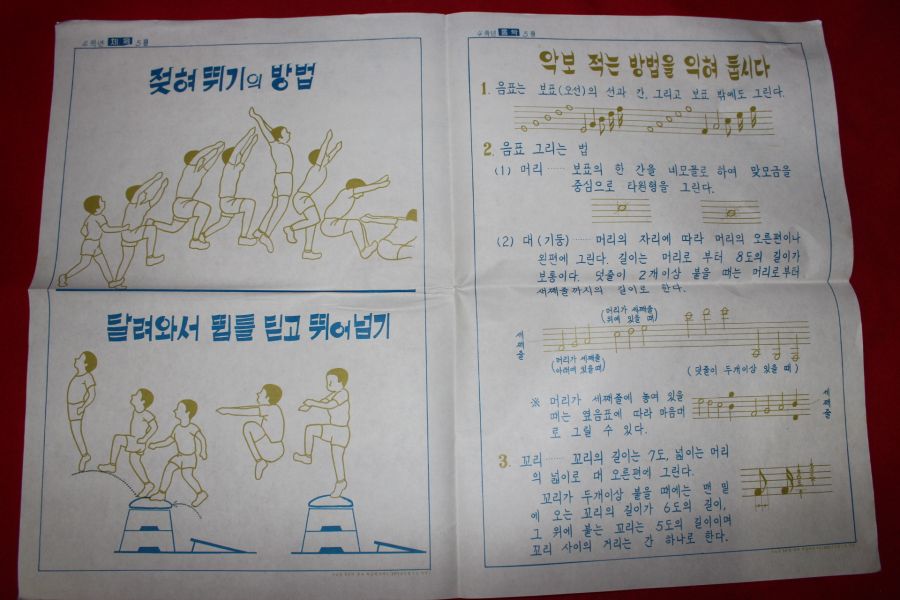 체육 5월
젖혀 뛰기의 방법
달려와서 뜀틀 딛고 뛰어넘기
음악 5월
악보 적는 방법을 익혀 둡시다
1. 음표는 보표(오선)의 선과 간, 그리고 보표 밖에도 그린다.
2. 음표 그리는 법
(1) 머리 …… 보표의 한 간을 네모꼴로 하여 맞모금을
중심으로 타원형을 그린다.
(2) 대 (기둥) …… 머리의 자리에 따라 머리의 오른편이나
왼편에 그린다. 길이는 머리로 부터 8도의 길이가
보통이다. 덧줄이 2개이상 붙을 때는 머리로부터
세째줄까지의 길이로 한다.
(머리가 세째줄
위에 있을 때)
세째줄
(머리가 세째줄
아래에 있을때)
(덧줄이 두개이상 있을 때)
※ 머리가 세째줄에 놓여 있을
때는 옆음표에 따라 마음대
로 그릴 수 있다.
세째줄
3. 꼬리 …… 꼬리의 길이는 7도, 넓이는 머리
의 넓이로 대 오른편에 그린다.
꼬리가 두개이상 붙을 때에는 맨 밑
에 오는 꼬리의 길이가 6도의 길이,
그 위에 붙는 꼬리는 5도의 길이이며
꼬리 사이의 거리는 간 하나로 한다.